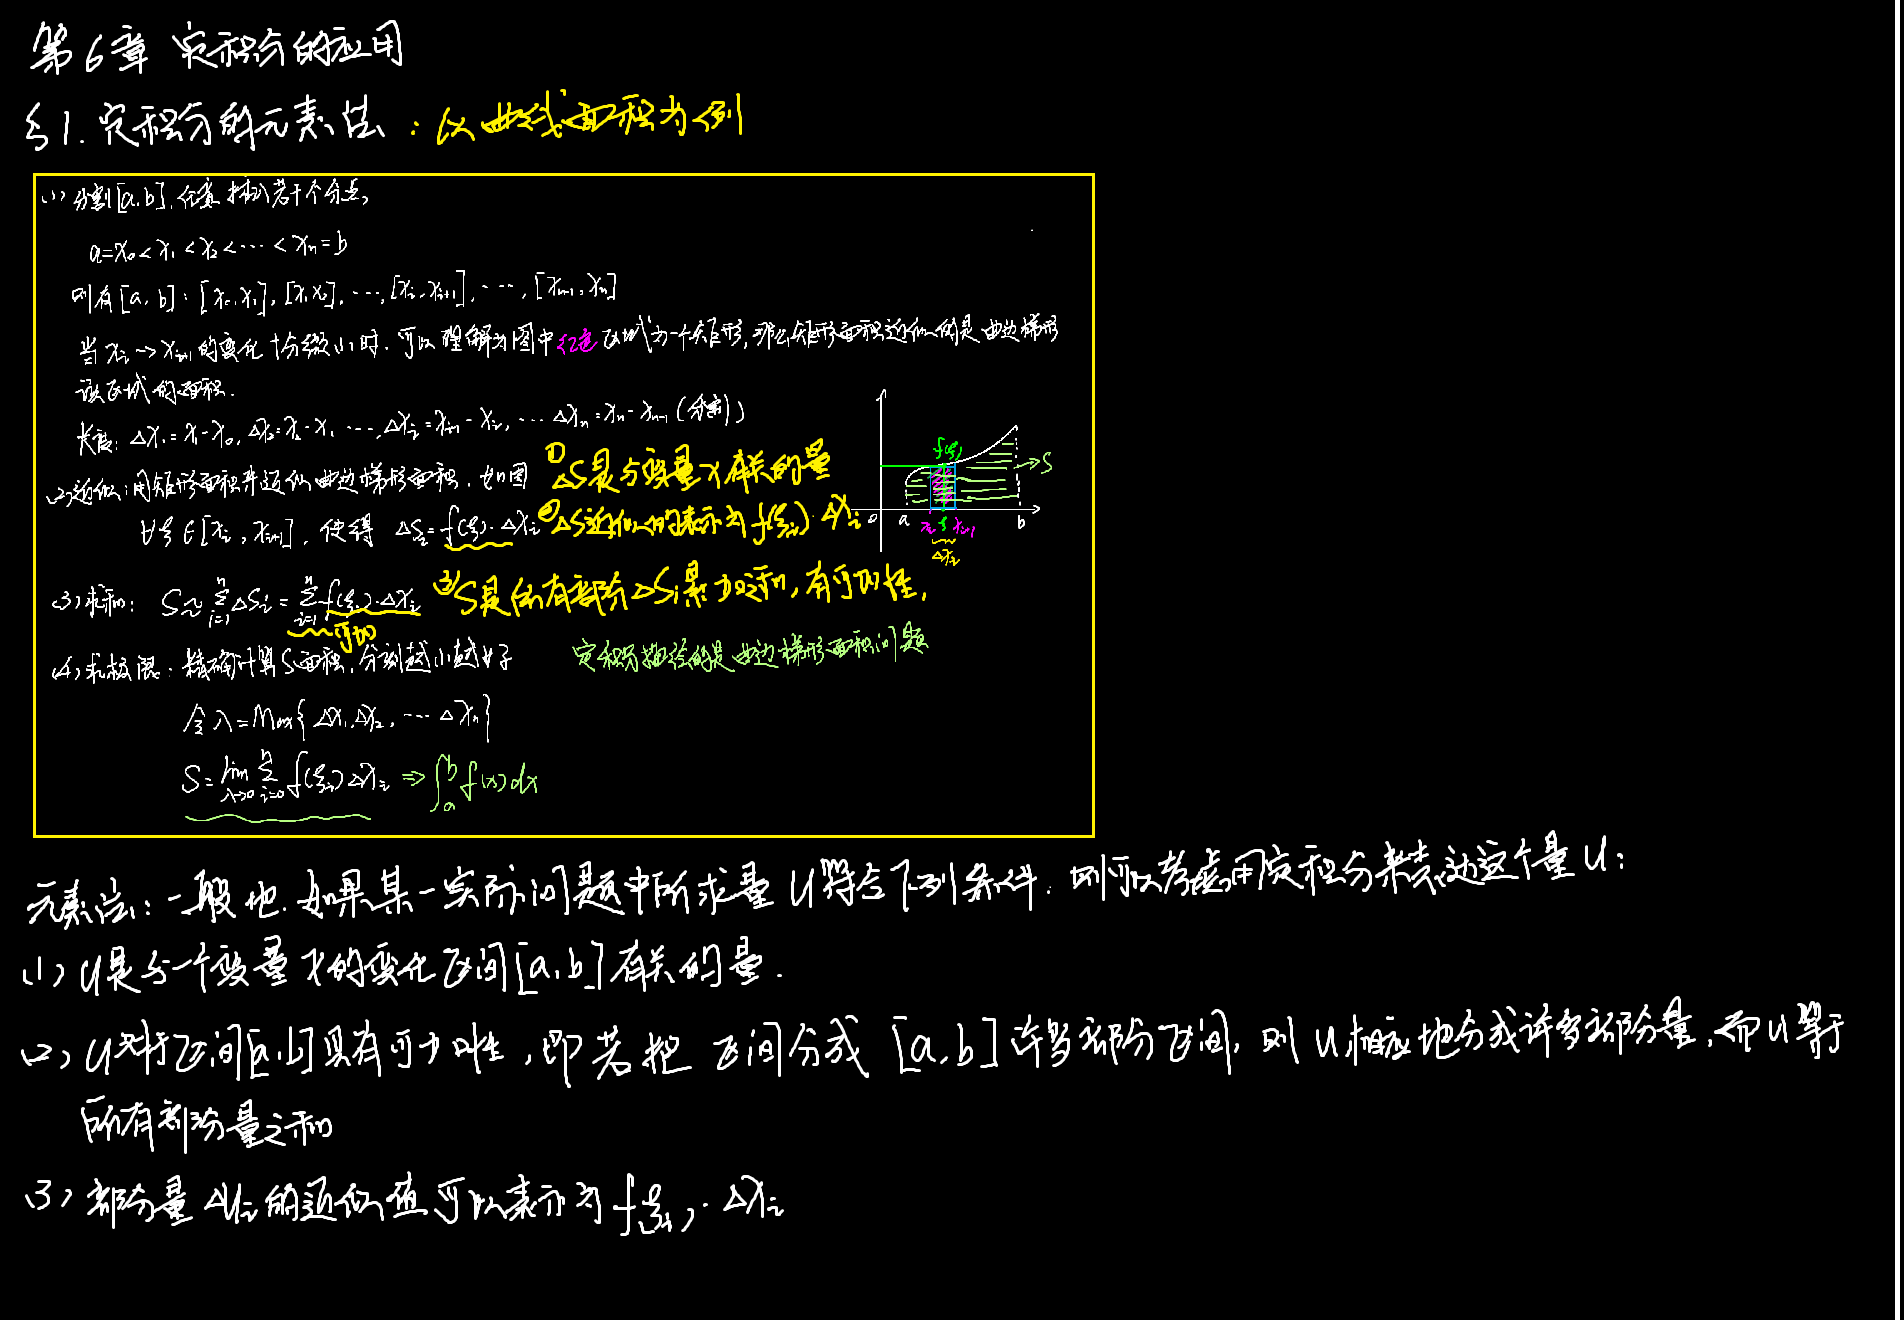 第6章 定积分的应用
§1. 定积分的元素法：以曲线面积为例
(1) 分割[a,b]，任意插入若干个分点，
a=x₀<x₁<x₂<⋯<xₙ=b
则有[a,b]：[x₀,x₁],[x₁,x₂],⋯,[xᵢ,xᵢ₊₁],⋯,[xₙ₋₁,xₙ]
当xᵢ→xᵢ₊₁的变化十分微小时，可以理解为图中红色区域为一个矩形，那么矩形面积近似的是曲边梯形
该区域的面积.
长度：Δx₁=x₁-x₀, Δx₂=x₂-x₁ ⋯, Δxᵢ=xᵢ₊₁-xᵢ, ⋯ Δxₙ=xₙ-xₙ₋₁（分割）
(2) 近似：用矩形面积来近似曲边梯形面积，如图
①ΔS是与变量x有关的量
∀ξ∈[xᵢ,xᵢ₊₁]，使得 ΔSᵢ=f(ξ)·Δxᵢ
②ΔS近似的表示为f(ξᵢ)·Δxᵢ
(3) 求和：S≈∑ᵢ₌₁ⁿΔSᵢ=∑ᵢ₌₁ⁿf(ξᵢ)·Δxᵢ
可加
③S是所有部分ΔSᵢ累加之和，有可加性，
(4) 求极限：精确计算S面积，分割越小越好
定积分描绘的是曲边梯形面积问题
令λ=Max{Δx₁,Δx₂,⋯Δxₙ}
S=lim_{λ→0}∑ᵢ₌₀ⁿf(ξᵢ)Δxᵢ ⇒ ∫ₐᵇf(x)dx
f(ξ)
S
0 a xᵢ ξ xᵢ₊₁ b
Δxᵢ
元素法：一般地.如果某一实际问题中所求量U符合下列条件.则可以考虑用定积分来表达这个量U：
(1) U是与一个变量x的变化区间[a,b]有关的量.
(2) U对于区间[a,b]具有可加性，即若把 区间分成 [a,b]许多部分区间，则 U相应地分成许多部分量，而U等于
所有部分量之和
(3) 部分量ΔUᵢ的近似值可以表示为f(ξᵢ)·Δxᵢ